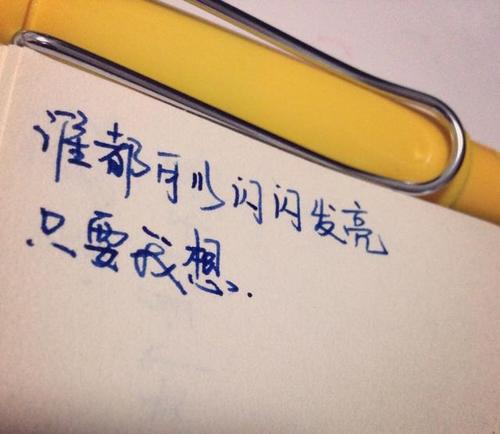 谁都可以闪闪发亮
只要我想.